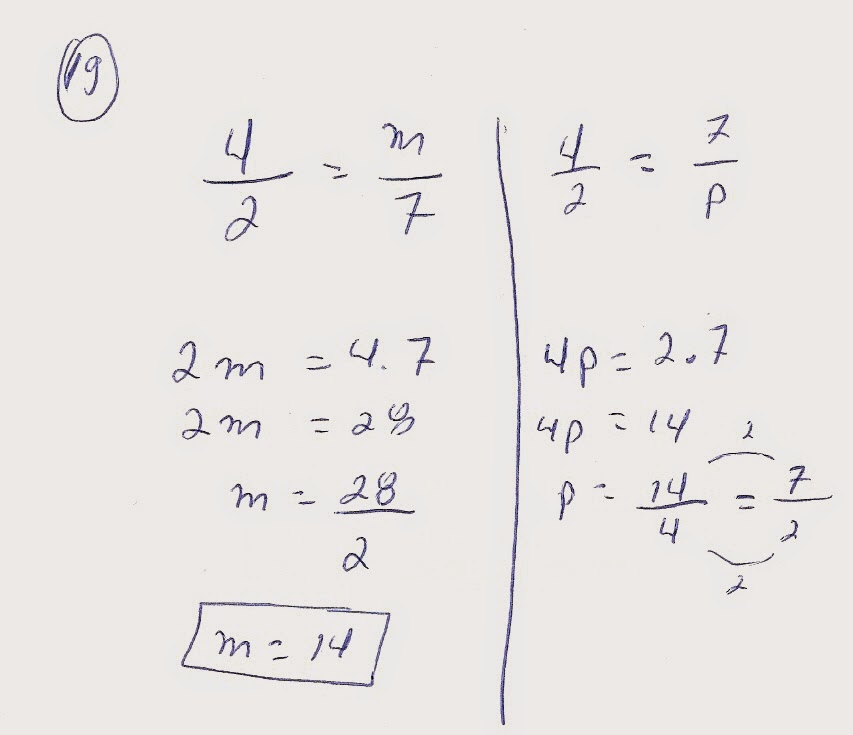 19
4/2 = m/7
2m = 4.7
2m = 28
m = 28/2
m = 14
4/2 = 7/p
4p = 2.7
4p = 14
p = 14/4 = 7/2
2
2